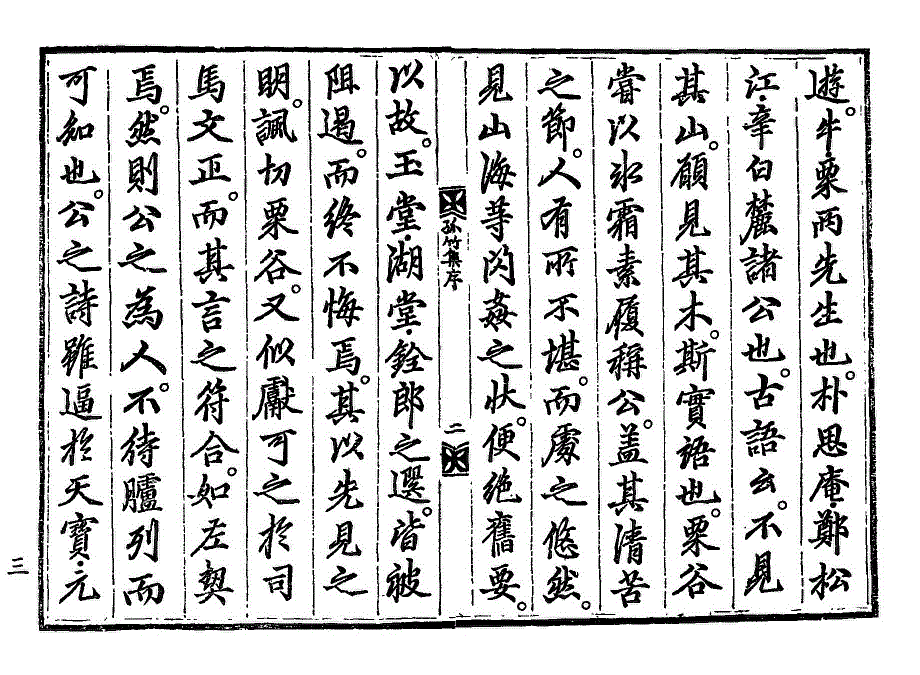 遊。牛·栗两先生也。朴思庵·鄭松
江·辛白麓諸公也。古語云。不見
其山。願見其木。斯實語也。栗谷
嘗以氷霜素履稱公。盖其淸苦
之節。人有所不堪。而處之悠然。
見山海等閃姦之狀。便絶舊要。
孤竹集序
二
以故。玉堂·湖堂·銓郎之選。皆被
阻遏。而終不悔焉。其以先見之
明。諷切栗谷。又似獻可之於司
馬文正。而其言之符合。如左契
焉。然則公之爲人。不待臚列而
可知也。公之詩雖逼於天寶·元
三